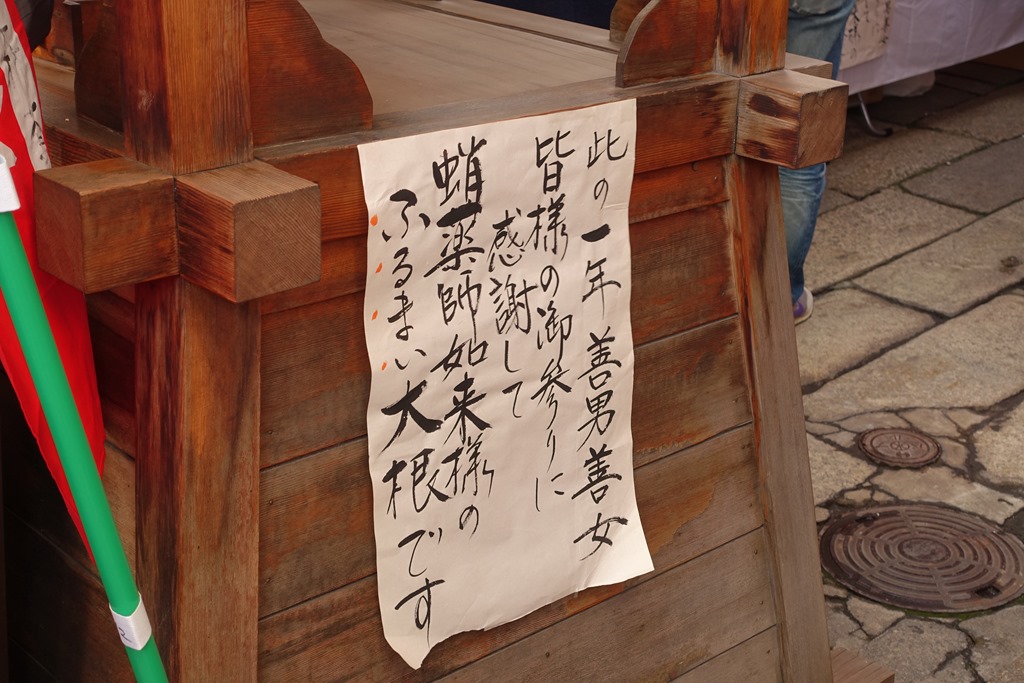 此の一年善男善女
皆様の御参りに
感謝して
蛸薬師如来様の
ふるまい大根です